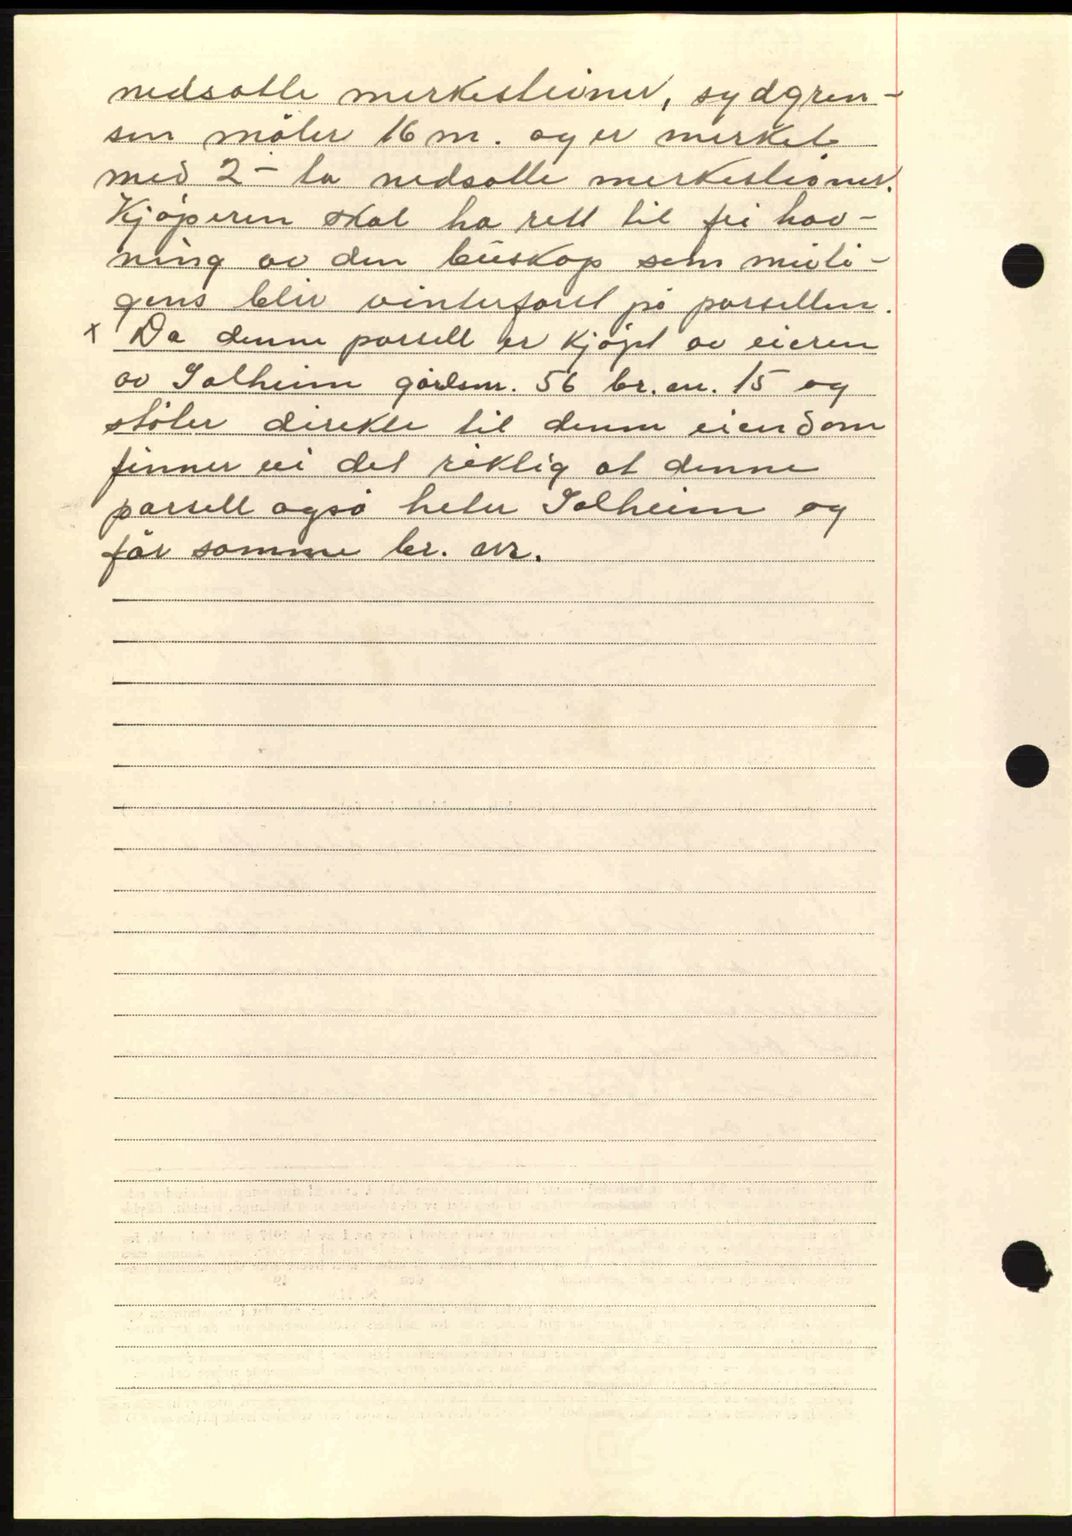 nedsatte merkesteiner, sydgren-
sen måler 16 m. og er merket
med 2 - to nedsatte merkesteiner.
Kjøperen skal ha rett til fri hav-
ning av den buskap som
gens blir vinterforet på parsellen.
x Da denne parsell er kjøpt av eieren
av Solheim gårdsnr. 56 br. nr. 15 og
støter direkte til denne eiendom
finner vi det riktig at denne
parsell også heter Solheim og
får samme br. nr.